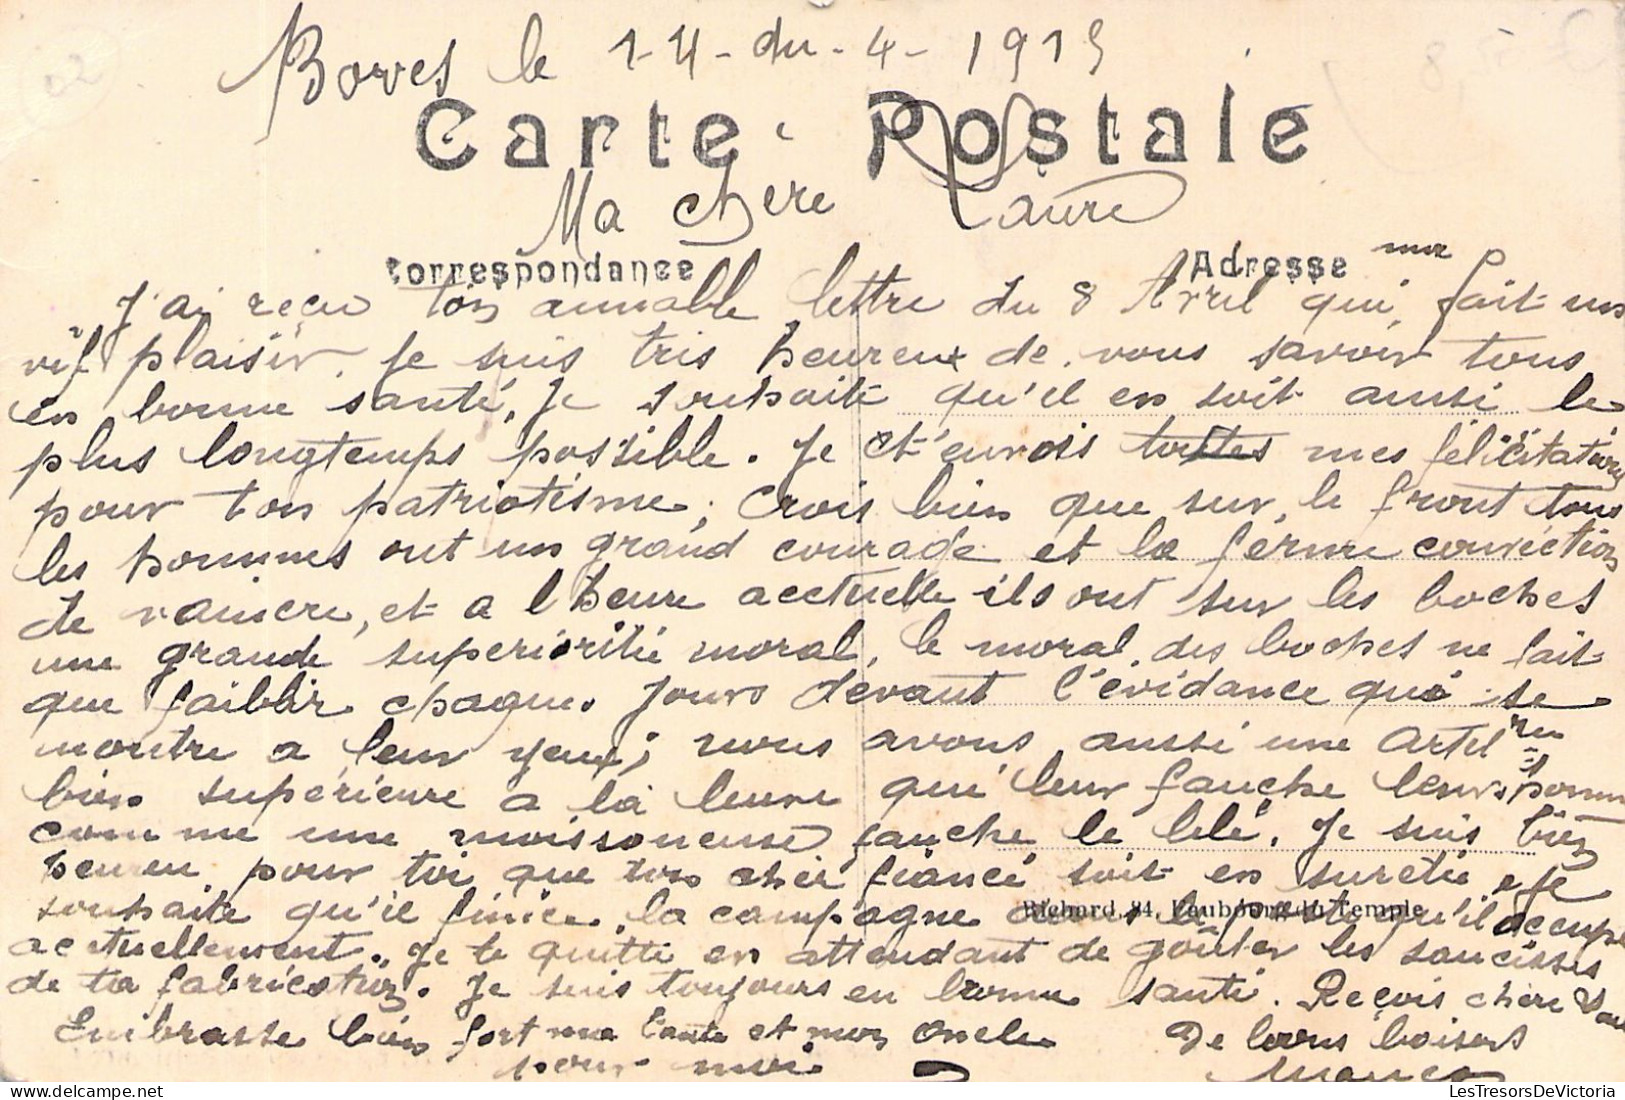 Boves le 14 du 4 1915
Carte Postale
Ma chère Laure
Correspondance
Adresse
J'ai reçu ton aimable lettre du 8 Avril qui me fait un
vif plaisir. Je suis très heureux de vous savoir tous
en bonne santé, Je souhaite qu'il en soit aussi le
plus longtemps possible. Je t'envois toutes mes félicitations
pour ton patriotisme, Crois bien que sur le front tous
les hommes ont un grand courage et la ferme conviction
de vaincre, et a l'heure actuelle ils ont sur les boches
une grande supériorité moral, le moral des boches ne fait
que faiblir chaque jours devant l'évidance qui se
montre a leur yeux; nous avons aussi une artillerie
bien supérieure a la leure qui leur fauche leurs hommes
comme une moissoneuse fauche le blé. Je suis bien
heureu pour toi que ton cher fiancé soit en sureté, Je
souhaite qu'il finice la campagne dans le poste qu'il occupe
Richard, 84, Faubourg du Temple
actuellement. Je te quitte en attendant de goûter les saucisses
de ta fabrication. Je suis toujours en bonne santé. Reçois chère
Embrasse bien fort ma tante et mon oncle
De bons baisers
pour moi
LesTresorsDeVictoria